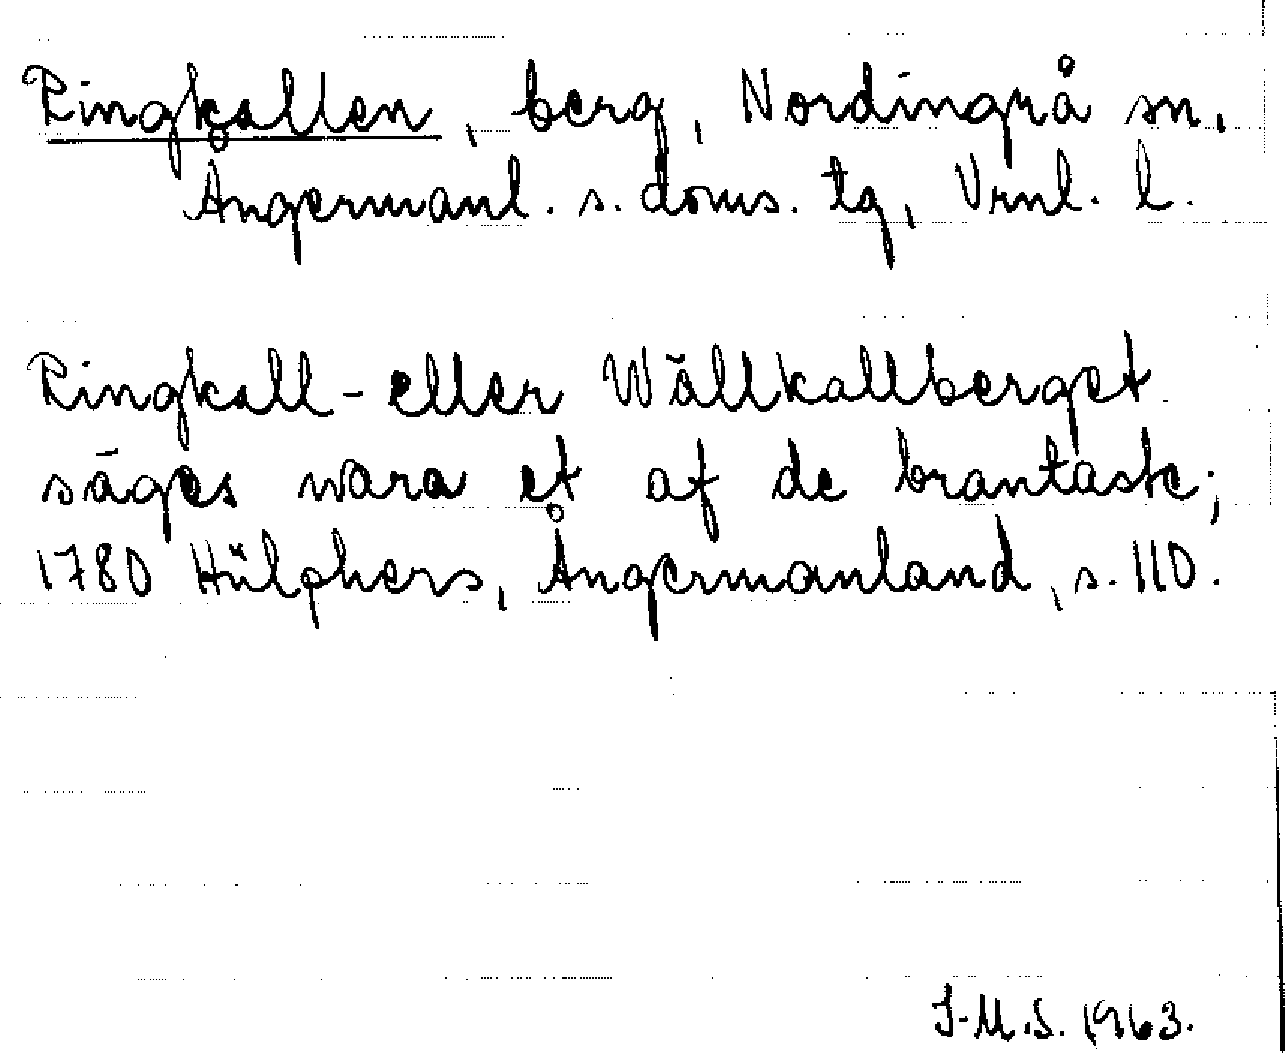 Ringkallen, berg, Nordingrå sn,
Ångermanl. s. doms. tg, Vrnl. l.
Ringkall- eller Wällkallberget
säges wara et af de brantaste;
1780 Hülphers, Ångermanland, s. 110.
I-M.S. 1963.